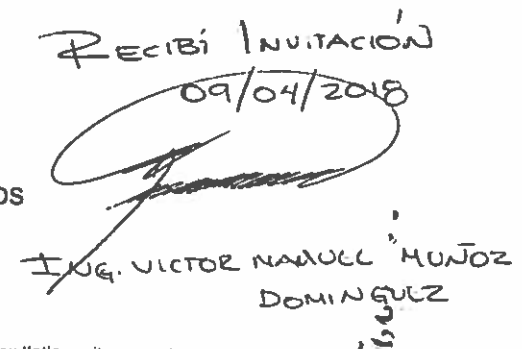 RECIBÍ INVITACIÓN
09/04/2018
OS
ING. VICTOR MANUEL MUÑOZ
DOMINGUEZ